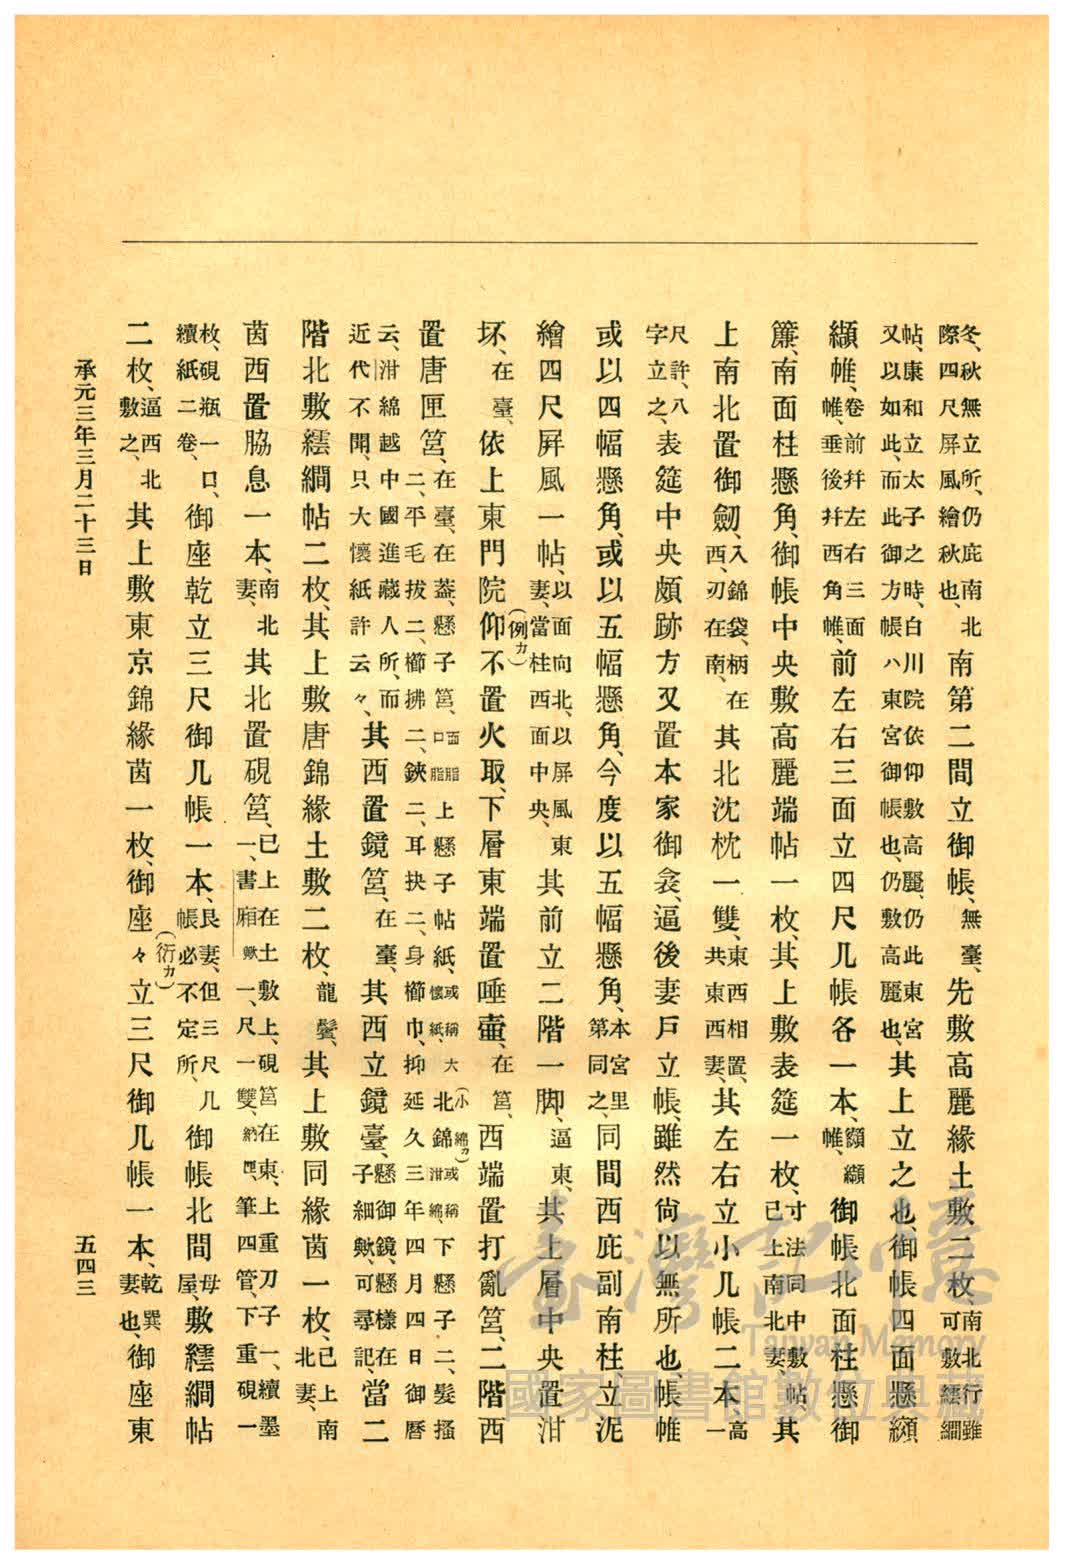 冬、秋無立所、仍庇南北際四尺屏風繪秋也、南第二間立御帳、無臺、先敷高麗緣土敷二枚、南北行雖可敷繧繝
帖、康和立太子之時、白川院依仰敷高麗、仍此東宮又以如此、而此御方帳ハ東宮御帳也、仍敷高麗也、其上立之也、御帳四面懸纐
纈帷、卷前幷左右三面帷、垂後幷西角帷、前左右三面立四尺几帳各一本、額纈帷、御帳北面柱懸御
簾、南面柱懸角、御帳中央敷高麗端帖一枚、其上敷表筵一枚、寸法同中敷帖、已上南北妻、其
上南北置御劔、入錦袋、柄在西、刃在南、其北沈枕一雙、東西相置、共東西妻、其左右立小几帳二本、高一
尺許、八字立之、表筵中央頗跡方又置本家御衾、逼後妻戶立帳、雖然尙以無所也、帳帷
或以四幅懸角、或以五幅懸角、今度以五幅懸角、本宮里第同之、同間西庇副南柱立泥
繪四尺屏風一帖、以面向北、以屏風東妻、當柱西面中央、其前立二階一脚、逼東、其上層中央置泔
坏、在臺、依上東門院仰(例カ)不置火取、下層東端置唾壺、在筥、西端置打亂筥、二階西
置唐匣筥、在臺、在蓋、懸子筥、面脂口脂上懸子帖紙、或稱大懷紙、北(小)錦(綿カ)或稱泔綿、下懸子二、髮搔二、平毛拔二、櫛拂二、鋏二、耳抉二、身櫛巾、抑延久三年四月四日御曆
云、泔綿越中國進藏人所、而近代不聞、只大懷紙許云々、其西置鏡筥、在臺、其西立鏡臺、懸御鏡、懸樣在子細歟、可尋記、當二
階北敷繧繝帖二枚、其上敷唐錦緣土敷二枚、龍鬢、其上敷同緣茵一枚、已上南北妻、
茵西置脇息一本、南北妻、其北置硯筥、已上在土敷上、硯筥在東、上重刀子一、續墨一、書廂歟一、尺一雙、納匣、筆四管、下重硯一
枚、硯瓶一口、續紙二卷、御座乾立三尺御几帳一本、艮妻、但三尺几帳必不定所、御帳北間母屋、敷繧繝帖
二枚、逼西北敷之、其上敷東京錦緣茵一枚、御座々(衍カ)立三尺御几帳一本、乾巽妻也、御座東
承元三年三月二十三日
五四三
臺灣記憶
Taiwan Memory
國家圖書館數位典藏